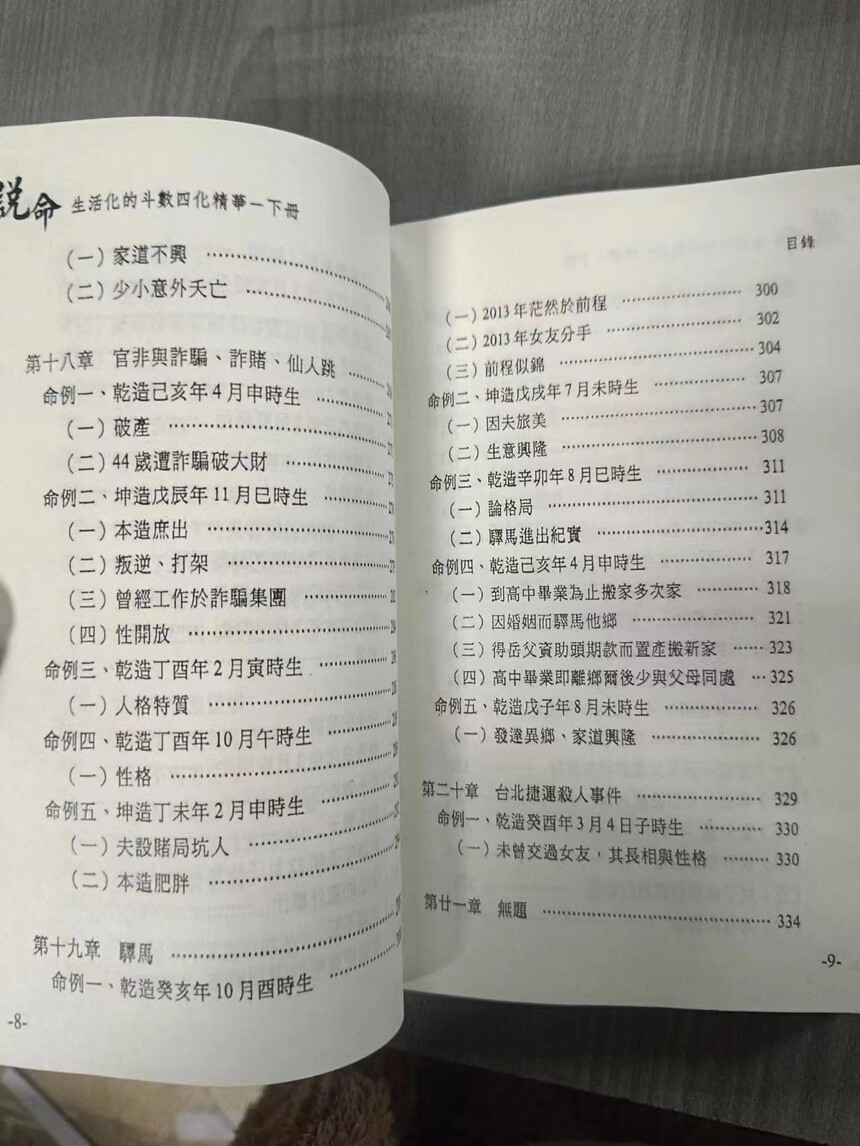 說命 生活化的斗數四化精華－下冊
（一）家道不興 ……………………
（二）少小意外夭亡 ……………………
第十八章 官非與詐騙、詐賭、仙人跳 …………
命例一、乾造己亥年4月申時生 ……………
（一）破產 ……………………
（二）44歲遭詐騙破大財 ……………
命例二、坤造戊辰年11月巳時生 ……………
（一）本造庶出 ……………………
（二）叛逆、打架 ……………………
（三）曾經工作於詐騙集團 ……………
（四）性開放 ……………………
命例三、乾造丁酉年2月寅時生 ……………
（一）人格特質 ……………………
命例四、乾造丁酉年10月午時生 ……………
（一）性格 ……………………
命例五、坤造丁未年2月申時生 ……………
（一）夫設賭局坑人 ……………………
（二）本造肥胖 ……………………
第十九章 驛馬 ……………………
命例一、乾造癸亥年10月酉時生 ……………
-8-
目錄
（一）2013年茫然於前程 …………… 300
（二）2013年女友分手 …………… 302
（三）前程似錦 …………… 304
命例二、坤造戊戌年7月未時生 …………… 307
（一）因夫旅美 …………… 307
（二）生意興隆 …………… 308
命例三、乾造辛卯年8月巳時生 …………… 311
（一）論格局 …………… 311
（二）驛馬進出紀實 …………… 314
命例四、乾造己亥年4月申時生 …………… 317
（一）到高中畢業為止搬家多次家 ………… 318
（二）因婚姻而驛馬他鄉 …………… 321
（三）得岳父資助頭期款而置產搬新家 …… 323
（四）高中畢業即離鄉爾後少與父母同處 … 325
命例五、乾造戊子年8月未時生 …………… 326
（一）發達異鄉、家道興隆 …………… 326
第二十章 台北捷運殺人事件 …………… 329
命例一、乾造癸酉年3月4日子時生 ………… 330
（一）未曾交過女友，其長相與性格 ……… 330
第廿一章 無題 …………… 334
-9-